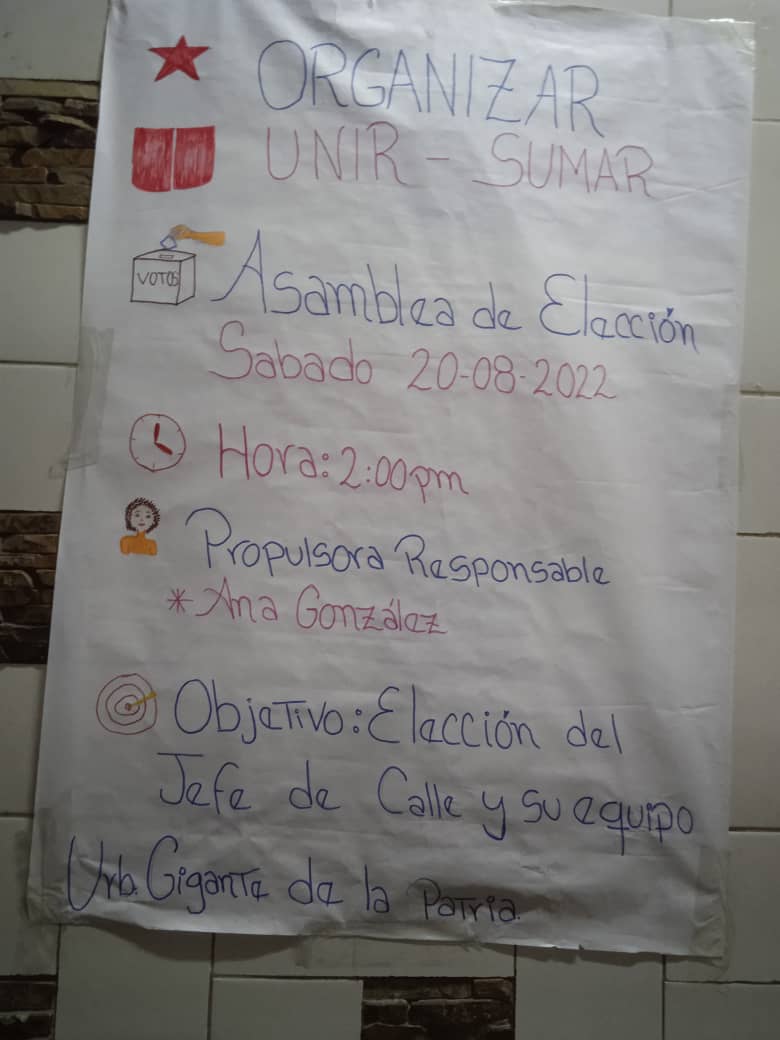 ORGANIZAR
UNIR - SUMAR
VOTOS
Asamblea de Elección
Sabado 20-08-2022
Hora: 2:00pm
Propulsora Responsable
* Ana González
Objetivo: Elección del
Jefe de Calle y su equipo
Urb. Gigante de la Patria.